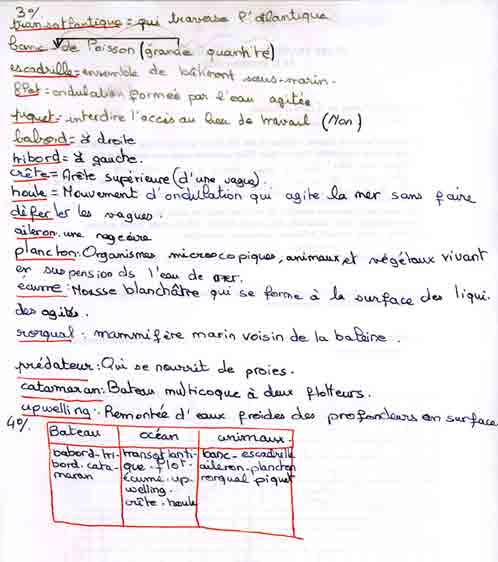 3%
transatlantique = qui traverse l'atlantique
banc = de Poisson (grande quantité)
escadrille = ensemble de bâtiment sous-marin.
flot = ondulation formée par l'eau agitée
piquet = interdire l'accès au lieu de travail (Non)
babord = à droite
tribord = à gauche.
crête = Arête supérieure (d'une vague).
houle = Mouvement d'ondulation qui agite la mer sans faire
déferler les vagues.
aileron: une nageoire
plancton: Organismes microscopiques, animaux, et végétaux vivant
en suspension ds l'eau de mer.
écume: Mousse blanchâtre qui se forme à la surface des liqui-
des agités.
rorqual: mammifère marin voisin de la baleine.
prédateur: Qui se nourrit de proies.
catamaran: Bateau multicoque à deux flotteurs.
upwelling: Remontée d'eaux froides des profondeurs en surface
4%
Bateau océan animaux
babord-tri- transatlanti- banc-escadrille
bord-cata- que-flot- aileron-plancton
maran écume-up- rorqual piquet
welling-
crête-houle